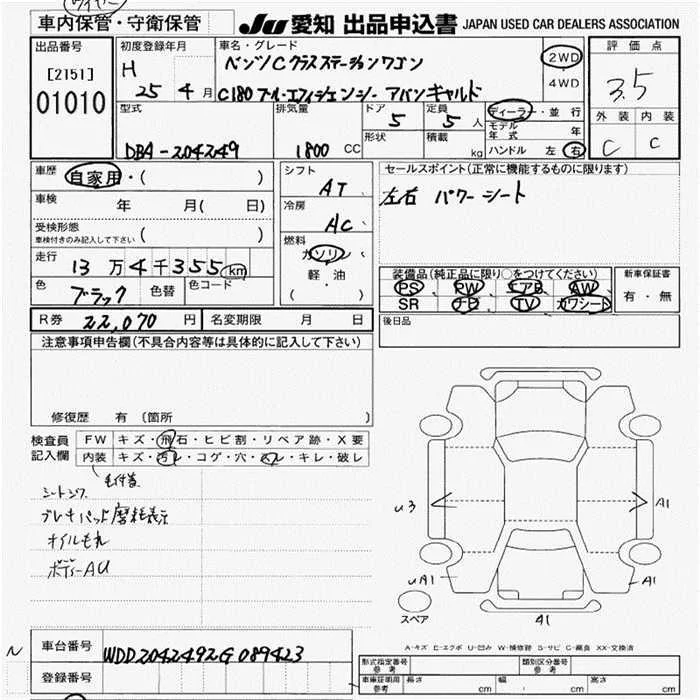 車内保管・守衛保管
JU 愛知 出品申込書 JAPAN USED CAR DEALERS ASSOCIATION
出品番号
[2151]
01010
初度登録年月
H 25 4 月
車名・グレード
ベンツCクラスステーションワゴン
C180ブルーエフィシェンシー アバンギャルド
2WD
・
4WD
評価点
3.5
外装 内装
C C
型式
DBA-204249
排気量
1800 CC
ドア
5
定員
5 人
形状
積載 kg
ディーラー・並行
モデル年式 年
ハンドル 左 右
車歴
自家用・( )
車検
年 月( 日)
受検形態
車検付きのみ記入して下さい ( )
走行
13万4千355km
色
ブラック
色替
色コード
シフト
AT
冷房
AC
燃料
ガソリン
軽・油
( ・ )
セールスポイント(正常に機能するものに限ります)
左右 パワーシート
装備品(純正品に限り○をつけてください)
PS PW エアB AW
SR ナビ TV カワシート
新車保証書
有・無
R券 22,070 円
名変期限 月 日
後日品
注意事項申告欄(不具合内容等は具体的に記入して下さい)
修復歴 有 (箇所
検査員
記入欄
FW キズ・飛石・ヒビ割・リペア跡・X要
内装 キズ・汚レ・コゲ・穴・スレ・キレ・破レ
ブレーキパッド磨耗表示
オイルもれ
ボディーAU
U3
A1
UA1
A1
スペア
A1
A-キズ E-エクボ U-凹み W-補修跡 S-サビ C-腐食 XX-交換済
N
車台番号
WDD2042492G089423
登録番号
形式指定番号
参考
類別区分番号
参考
車庫証明用
参考
長さ cm
幅 cm
高さ cm